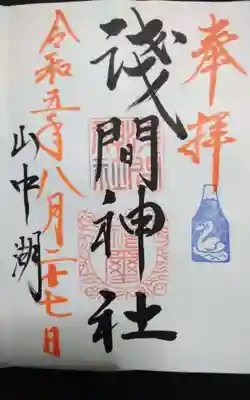 奉拝
浅間神社
山中湖
令和五年八月二十七日